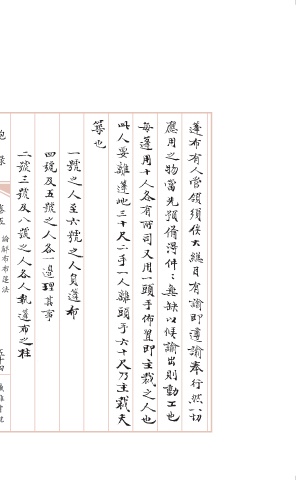 蓬布有人管領須俟大總目有諭即遵諭奉行然一切
應用之物當先預備得件件無缺以候諭出則動工也
每蓬用十人各有所司又用一頭手佈置即主裁之人也
此人要離蓬地三十尺二手一人離頭手六十尺乃主裁夫
篙也
一號之人至六號之人負蓬布
四號及五號之人各一邊理其事
二號三號及八號之人各人執蓬布之柱
卷五
論解布布蓬法
五十四